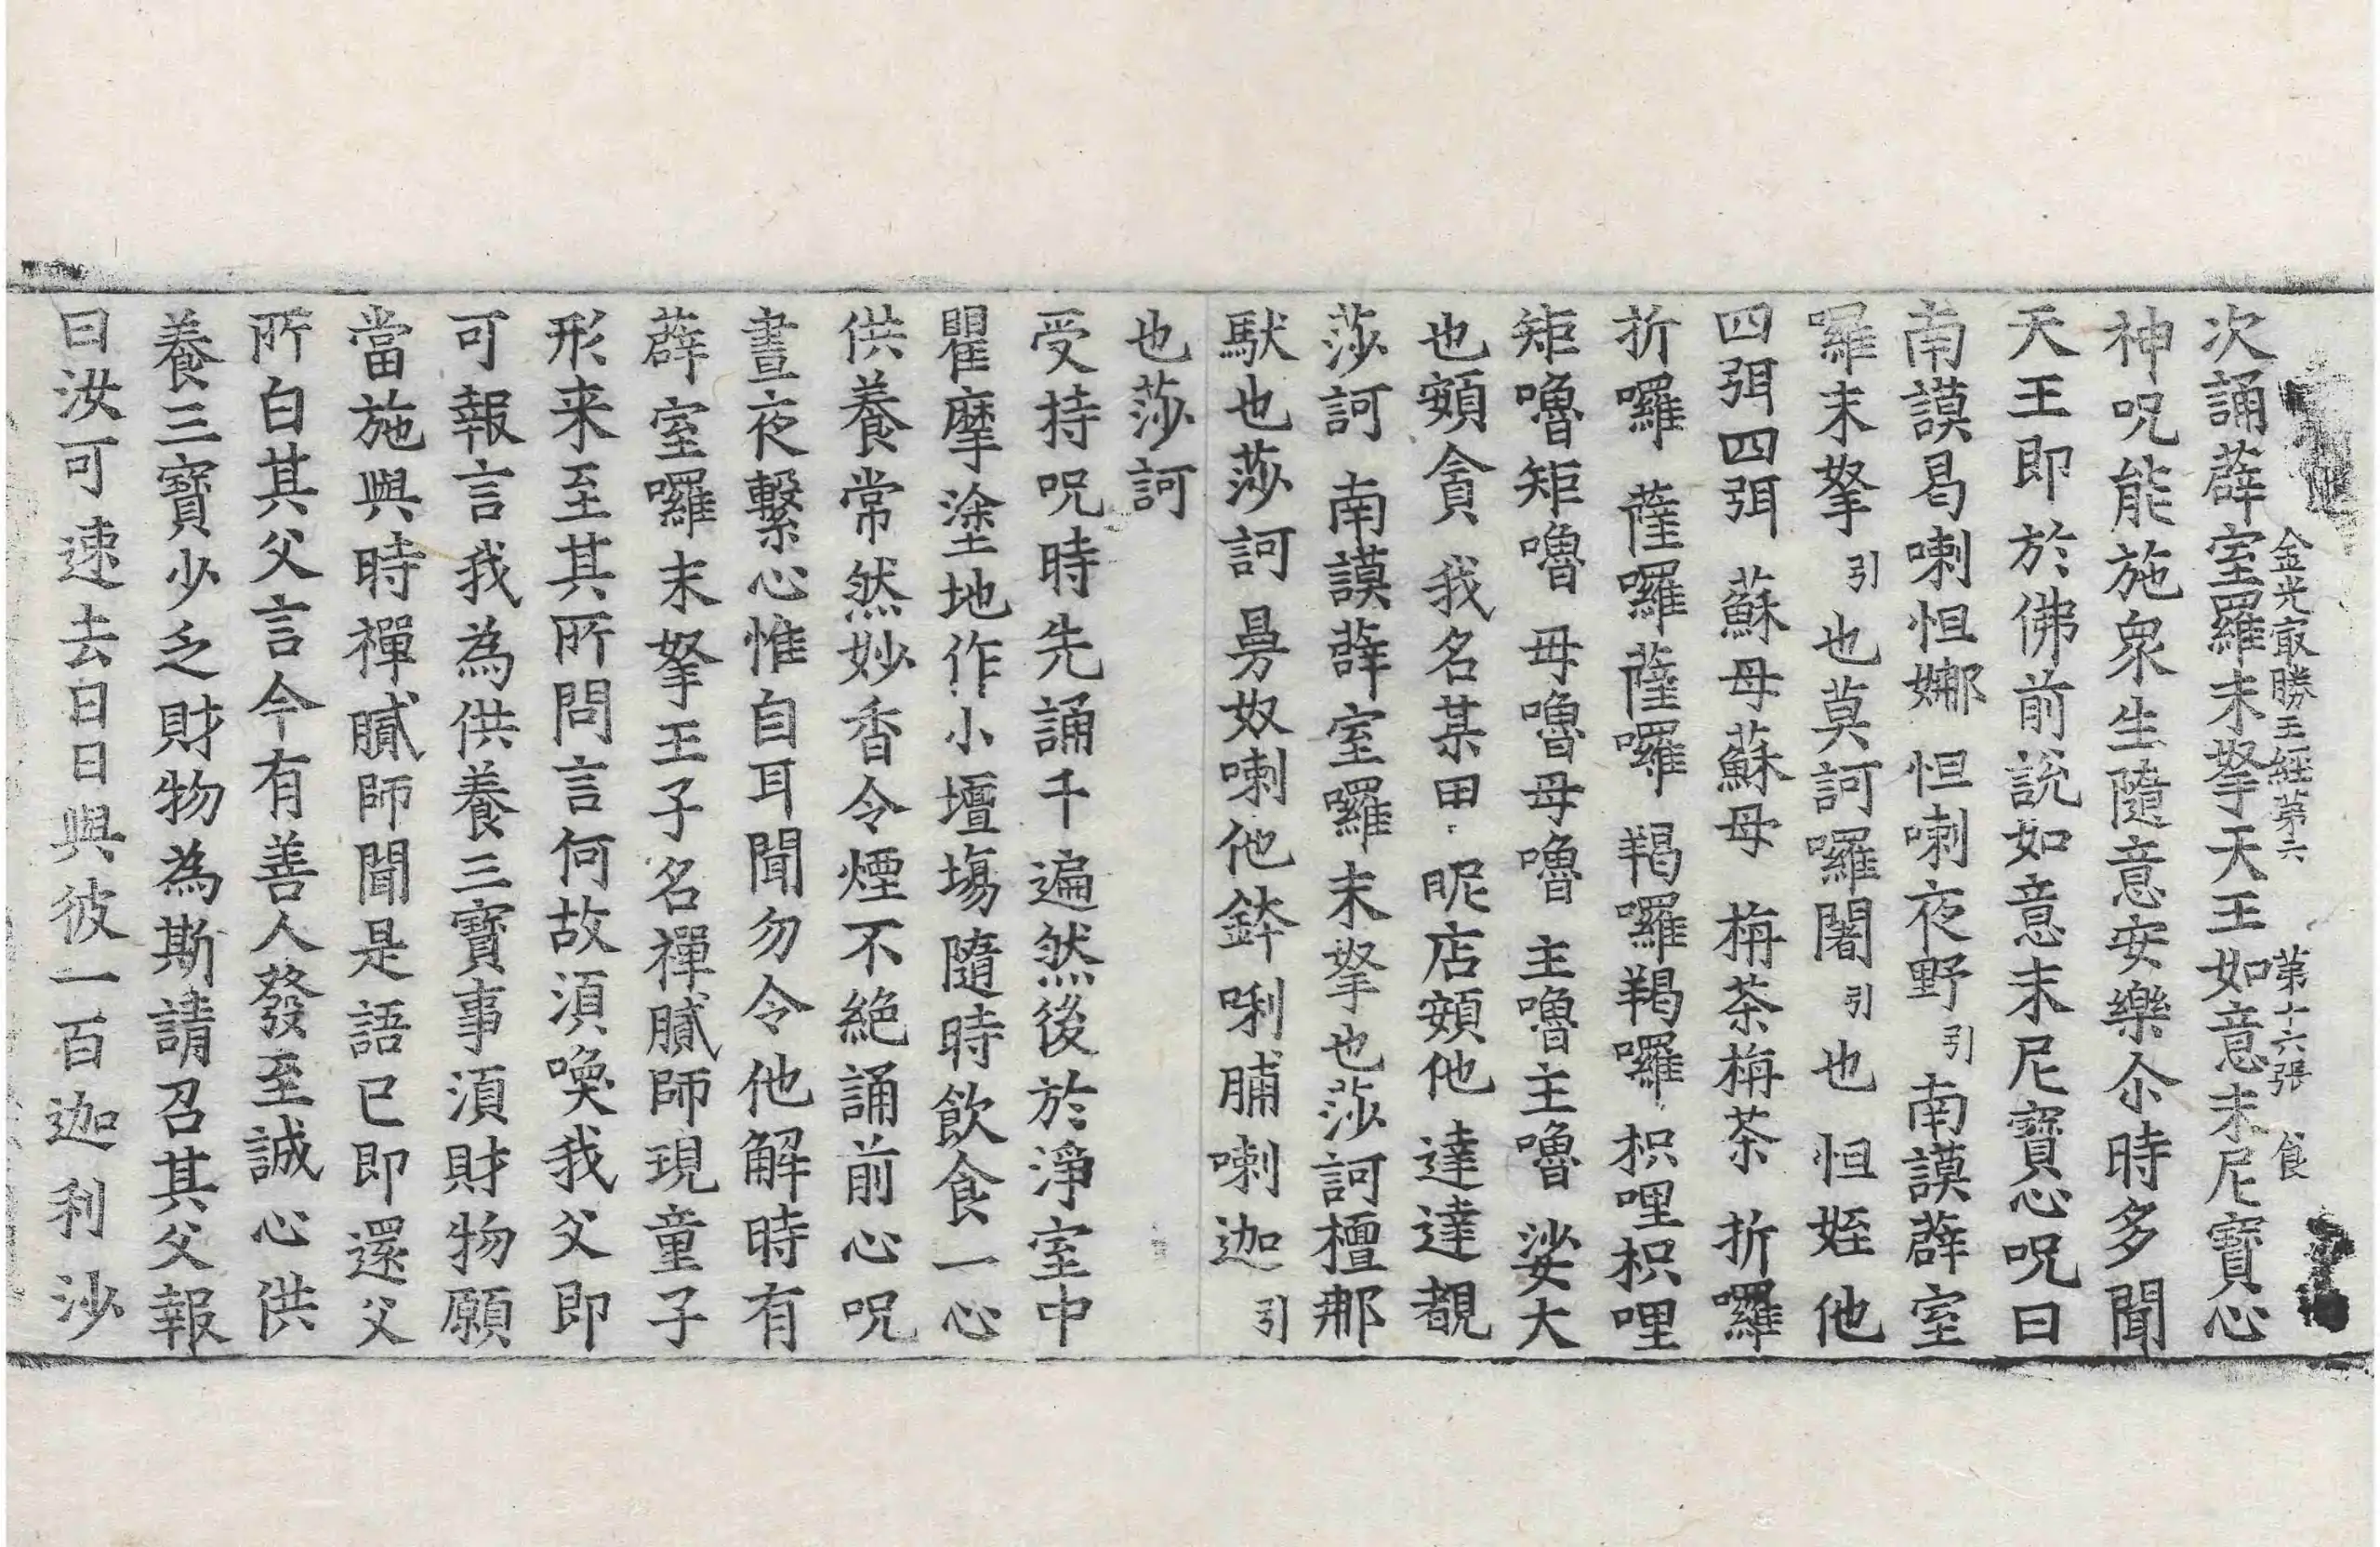 金光㝡勝王經第六　第十六張　食
次誦薜室羅末拏天王如意末尼寶心
神呪能施衆生隨意安樂尒時多聞
天王即於佛前說如意末尼寶心呪曰
南謨曷喇怛娜 怛喇夜野引 南謨薜室
囉末拏引 也莫訶囉闍引也 怛姪他
四弭四弭 蘇母蘇母 栴茶栴茶 折囉
折囉 薩囉薩囉 羯囉羯囉 枳哩枳哩
矩嚕矩嚕 母嚕母嚕 主嚕主嚕 娑大
也頞貪 我名某甲 昵店頞他 達達覩
莎訶 南謨薜室囉末拏也莎訶檀那
馱也莎訶 曼奴喇他鉢唎脯喇迦引
也莎訶
受持呪時先誦千遍然後於淨室中
瞿摩塗地作小壇場隨時飲食一心
供養常然妙香令煙不絕誦前心呪
晝夜繫心惟自耳聞勿令他解時有
薜室囉末拏王子名禪膩師現童子
形来至其所問言何故湏喚我父即
可報言我為供養三寶事湏財物願
當施與時禪膩師聞是語已即還父
所白其父言今有善人發至誠心供
養三寶少乏財物為斯請召其父報
曰汝可速去日日與彼一百迦利沙